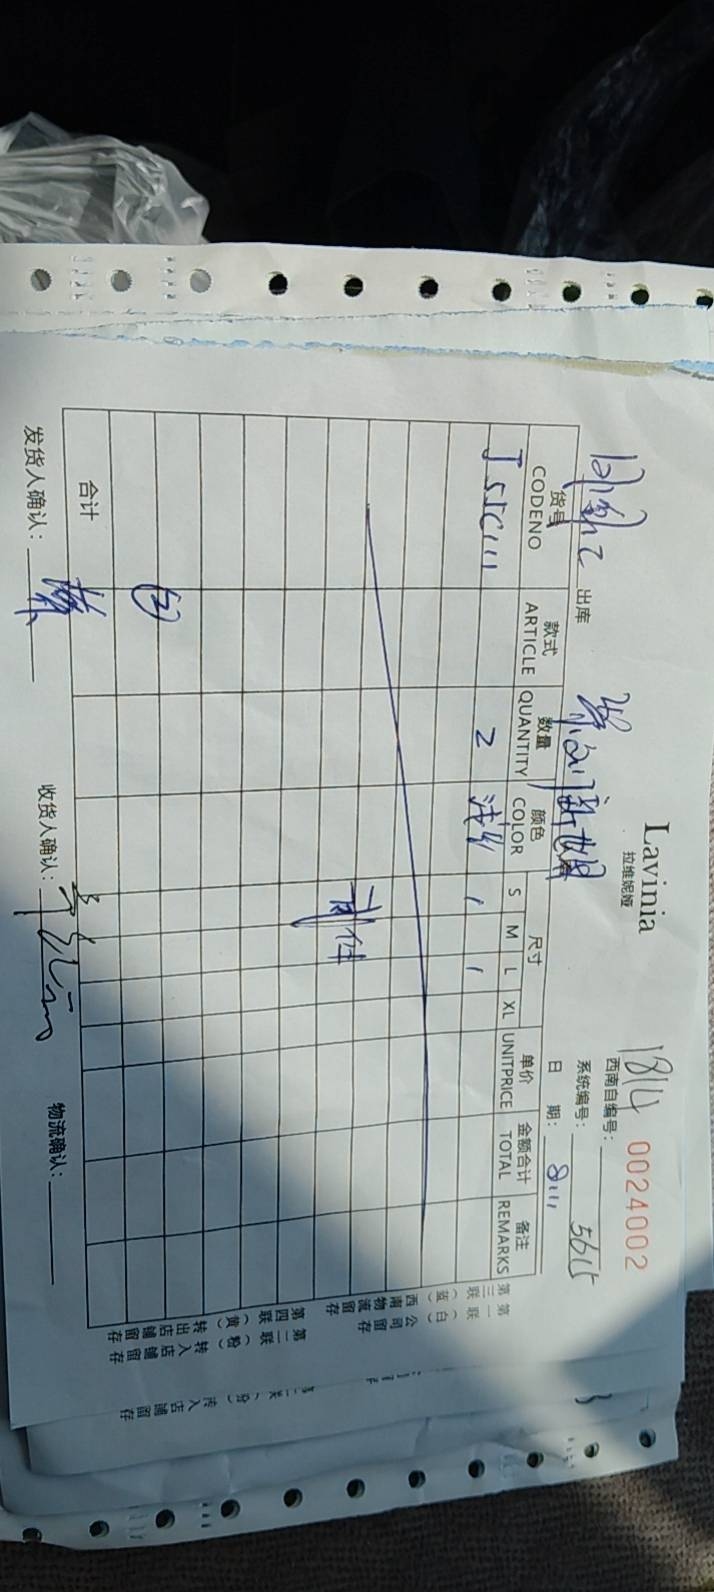 Lavinia
拉维妮娅
1814 0024002
西南自编号：
系统编号： 5615
出库 日 期： 8111
货号 款式 数量 颜色 尺寸 单价 金额合计 备注
CODENO ARTICLE QUANTITY COLOR S M L XL UNITPRICE TOTAL REMARKS
J55C111 2 浅 1 1
贰件
②
合计
发货人确认： 收货人确认： 物流确认：
第一联（白）公司留存
第三联（蓝）西南物流留存
第二联（粉）转入店铺留存
第四联（黄）转出店铺留存